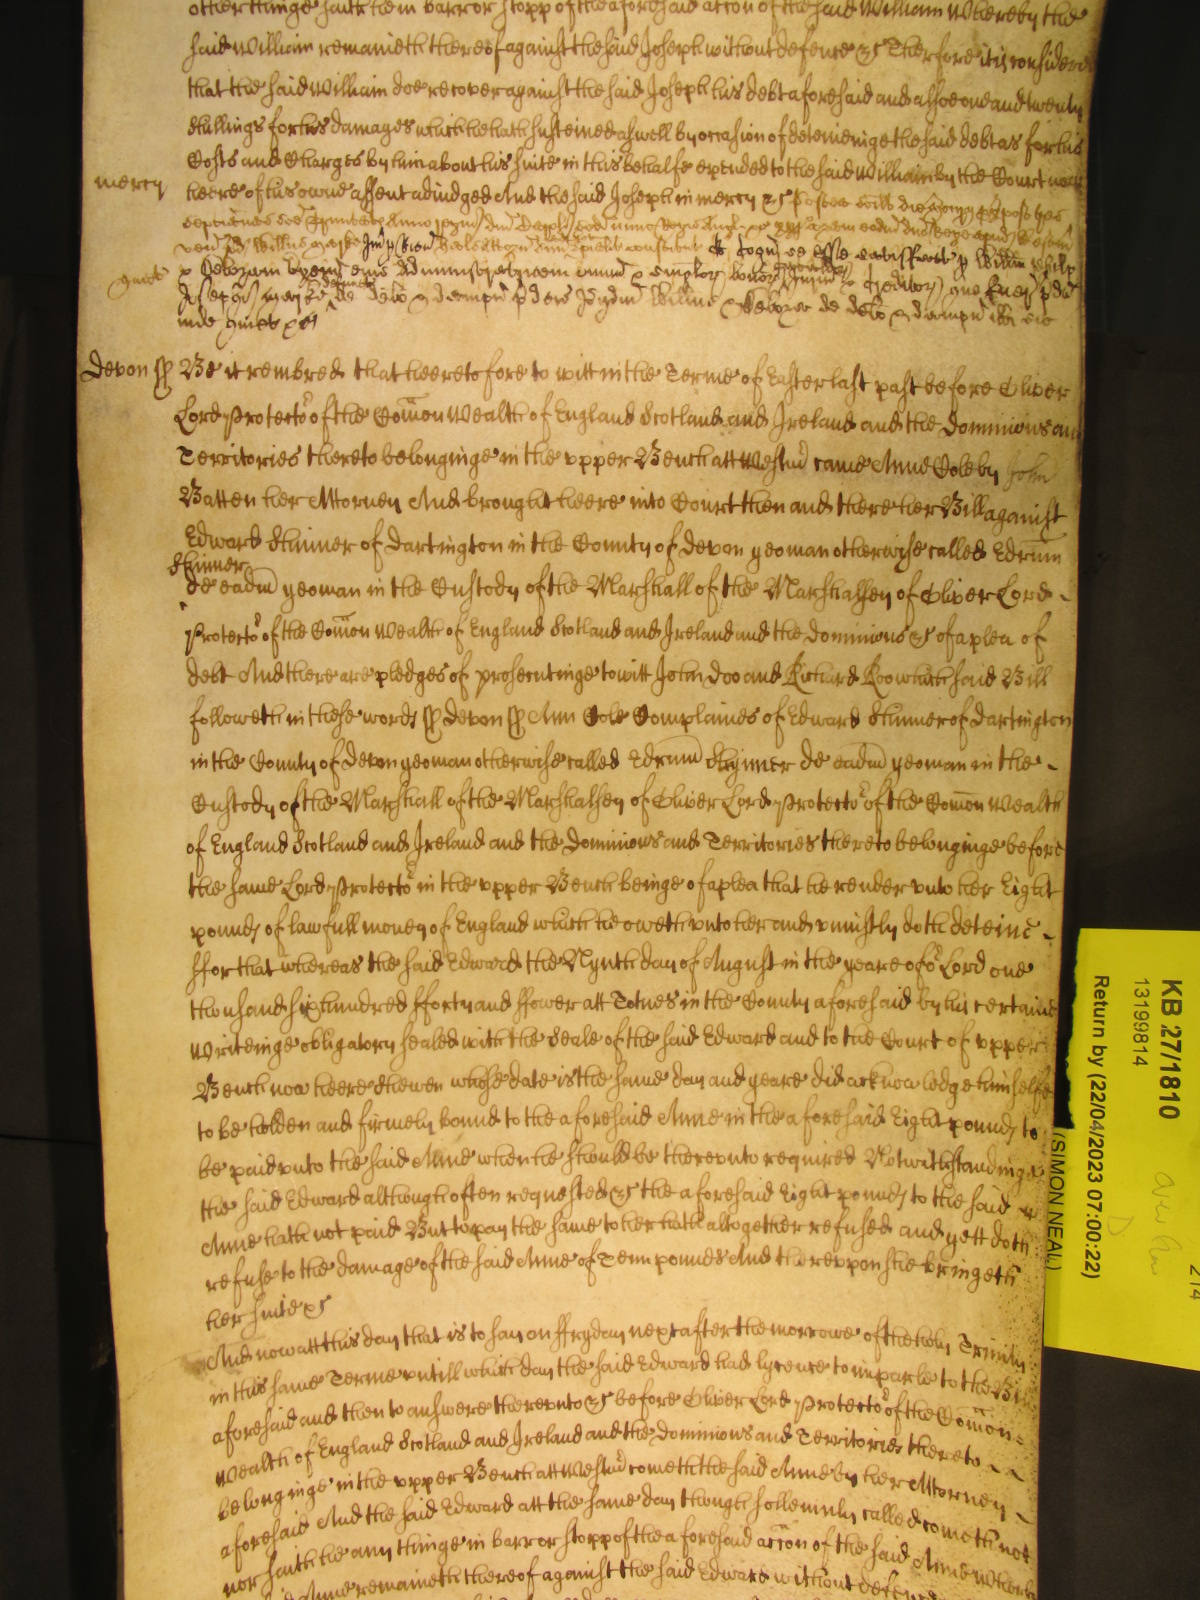 other thinge saith hee in barr or stopp of the aforesaid accon of the said William Whereby the
said William remaineth thereof against the said Joseph without defence &c Therfore it is considered
that the said William doe recover against the said Joseph his debt aforesaid and alsoe one and twenty
shillings for his damages which hee hath susteined aswell by occasion of deteineinge the said debt as for his
Costs and Charges by him about his suite in this behalfe expended to the said William by the Court now
mercy heere of his owne assent adiudged And the said Joseph in mercy &c
Devon ss Be it rembred that heeretofore to witt in the Terme of Easter last past before Oliver
Lord Protector of the Comon Wealth of England Scotland and Ireland and the Dominions and
Territories thereto belonginge in the vpper Bench att Westmr came Anne Cole by John
Batten her Attorney And brought heere into Court then and there her Bill against
Edward Skinner of Dartington in the County of Devon yeoman otherwise called Edrum
Skinner
de eadm yeoman in the Custody of the Marshall of the Marshallsey of Oliver Lord
Protector of the Comon Wealth of England Scotland and Ireland and the dominions &c of a plea of
debt And there are pledges of prosecutinge to witt John Doo and Richard Roo which said Bill
followeth in these words ss Devon ss Ann Cole Complaines of Edward Skinner of Dartington
in the County of Devon yeoman otherwise called Edrum Skynner de eadm yeoman in the
Custody of the Marshall of the Marshalsey of Oliver Lord Protector of the Comon Wealth
of England Scotland and Ireland and the Dominions and Territories thereto belonginge before
the same Lord Protector in the vpper Bench beinge of a plea that he render vnto her Eight
pounds of lawfull money of England which he oweth vnto her and vniustly doth deteine
ffor that whereas the said Edward the Nynth day of August in the yeare of or Lord one
thousand six hundred fforty and ffower att Totnes in the County aforesaid by his certaine
Writeinge obligatory sealed with the Seale of the said Edward and to the Court of vpper
Bench now heere shewen whose date is the same day and yeare did acknowledge himselfe
to be holden and firmely bound to the aforesaid Anne in the aforesaid Eight pounds to
be paid vnto the said Anne when he should be therevnto required Notwithstandinge
the said Edward although often requested &c the aforesaid Eight pounds to the said
Anne hath not paid But to pay the same to her hath altogether refused and yett doth
refuse to the damage of the said Anne of Tenn pounds And therevpon she bringeth
her suite &c
And now att this day that is to say on ffryday next after the morrowe of the holy Trinity
in this same Terme vntill which day the said Edward had lycence to imparle to the Bill
aforesaid and then to answere therevnto &c before Oliver Lord Protector of the Comon
Wealth of England Scotland and Ireland and the Dominions and Territories thereto
belonginge in the vpper Bench att Westmr cometh the said Anne by her Attorney
aforesaid And the said Edward att the same day though sollemnly called cometh not
nor saith he any thinge in barr or stopp of the aforesaid accon of the said Anne whereby
Anne remaineth thereof against the said Edward without defence
KB 27/1810
13199814
Return by (22/04/2023 07:00:22)
(SIMON NEAL)